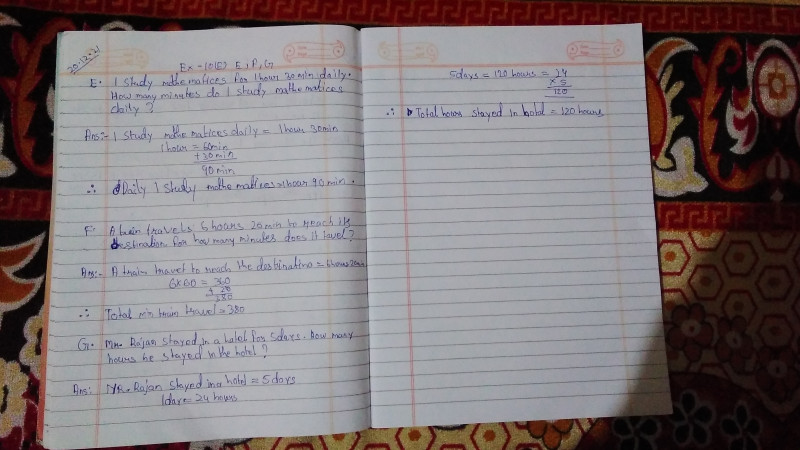 20-12-21
Ex-10(E) E, P, G
E. I study mathematices for 1 hour 30 min daily.
How many minutes do I study mathematices
daily ?
Ans:- I study mathematices daily = 1 hour 30 min
1 hour = 60 min
+30 min
90 min
∴ Daily I study mathematices 90 min.
F. A train travels 6 hours 20 min to reach its
destination for how many minutes does it travel?
Ans:- A train travel to reach the destination = 6 hours 20 min
6x60 = 360
+ 20
380
∴ Total min train travel = 380
G. Mr. Rajan stayed in a hotel for 5 days. How many
hours he stayed in the hotel ?
Ans: Mr. Rajan stayed in a hotel = 5 days
1 day = 24 hours
5 days = 120 hours = 24
x 5
120
∴ Total hours stayed in hotel = 120 hours